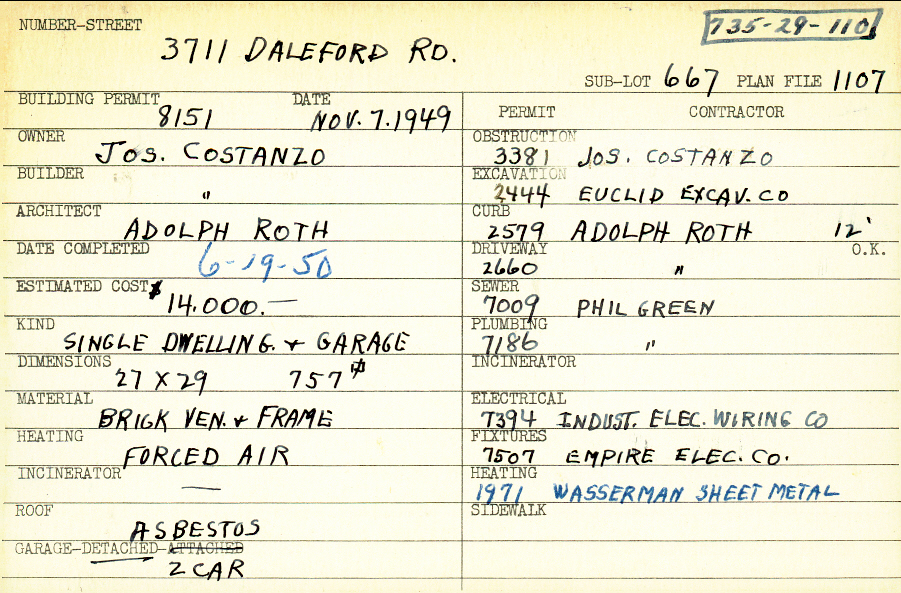 NUMBER-STREET
735-29-110
3711 DALEFORD RD.
SUB-LOT 667 PLAN FILE 1107
BUILDING PERMIT DATE
8151 NOV. 7. 1949
OWNER
JOS. COSTANZO
BUILDER
"
ARCHITECT
ADOLPH ROTH
DATE COMPLETED
6-19-50
ESTIMATED COST $
14.000.—
KIND
SINGLE DWELLING. & GARAGE
DIMENSIONS
27 X 29 757 #
MATERIAL
BRICK VEN. & FRAME
HEATING
FORCED AIR
INCINERATOR
—
ROOF
ASBESTOS
GARAGE-DETACHED-ATTACHED
2 CAR
PERMIT CONTRACTOR
OBSTRUCTION
3381 JOS. COSTANZO
EXCAVATION
2444 EUCLID EXCAV. CO
CURB
2579 ADOLPH ROTH 12'
DRIVEWAY O.K.
2660 "
SEWER
7009 PHIL GREEN
PLUMBING
7186 "
INCINERATOR
ELECTRICAL
7394 INDUST. ELEC. WIRING CO
FIXTURES
7507 EMPIRE ELEC. CO.
HEATING
1971 WASSERMAN SHEET METAL
SIDEWALK